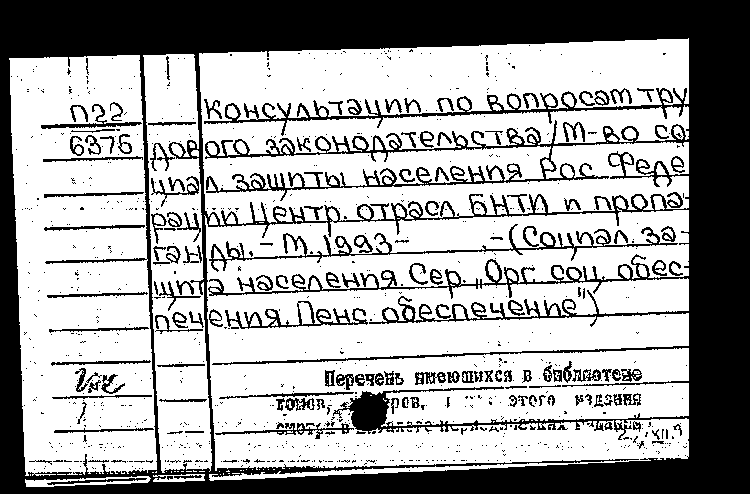 П22 Консультации по вопросам тру
6376 дового законодательства/М-во со-
циал. защиты населения Рос Феде
рации Центр. отрасл. БНТИ и пропа-
ганды. – М., 1993- .-(Социал. за-
щита населения. Сер. „Орг. соц. обес-
печения. Пенс. обеспечение")
Перечень имеющихся в библиотеке
томов, этого издания
смотри в каталоге периодических изданий